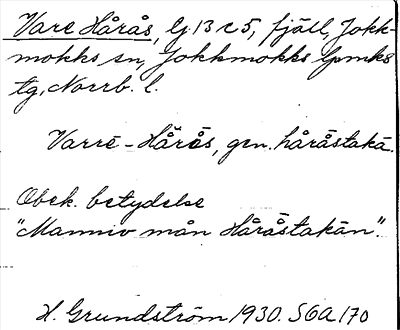 Vare Hårås, Lj 13 c 5, fjäll, Jokk-
mokks sn, Jokkmokks lpmks
tg, Norrb. l.
Varrē-Hårås, gen. håråstakā.
Obek. betydelse
"Manniv mån Håråstakān".
H. Grundström 1930. SOA 170